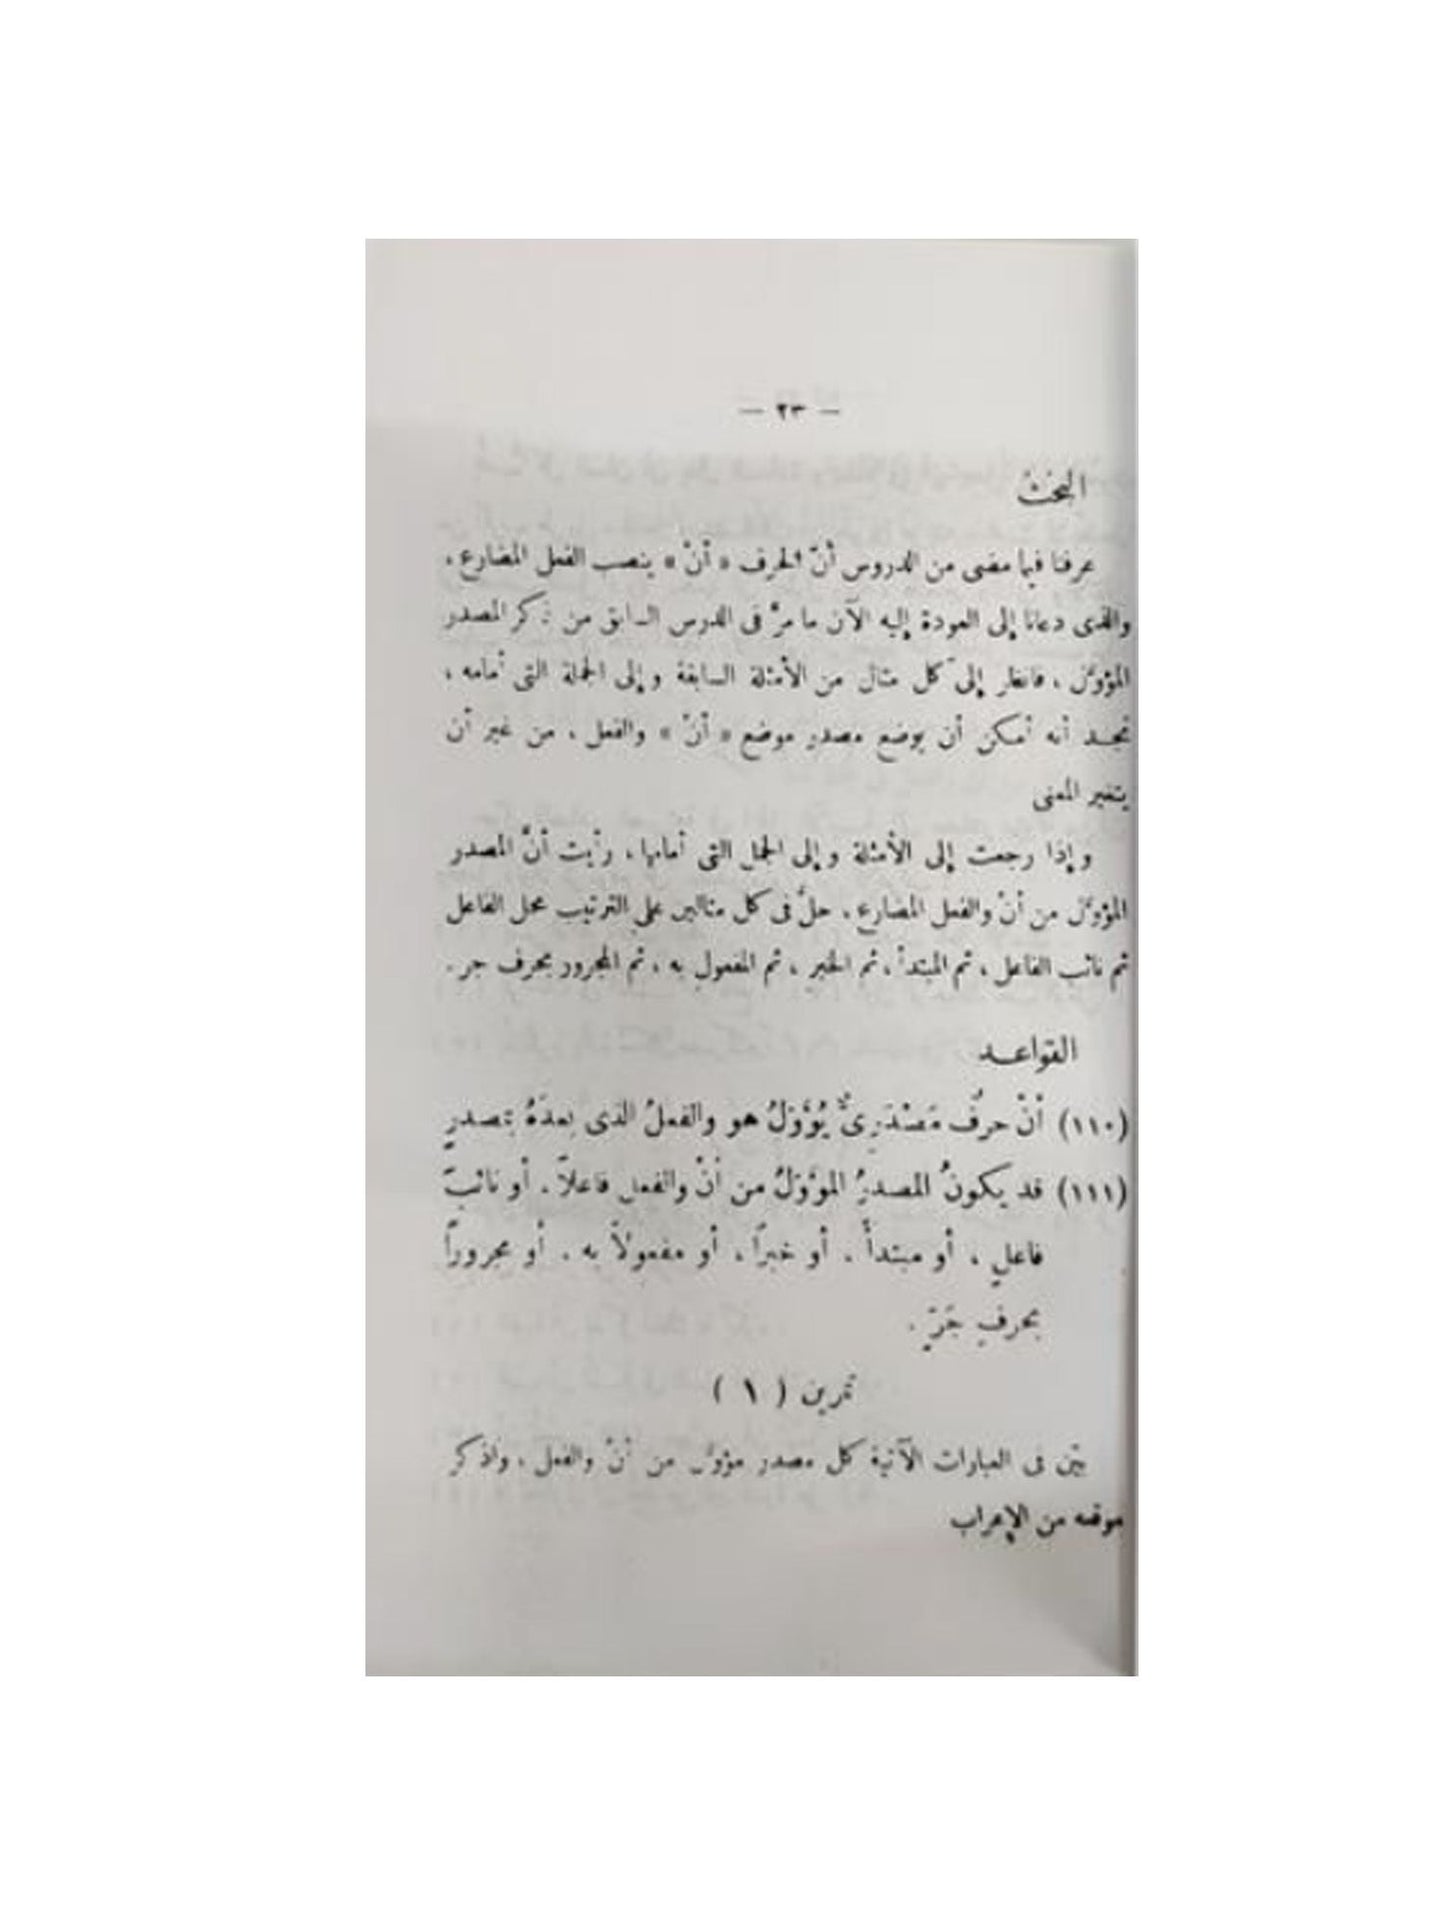 — ٢٣ —
البحث
عرفنا فيما مضى من الدروس أنّ الحرف « أنْ » ينصب الفعل المضارع ،
والذى دعانا إلى العودة إليه الآن ما مرّ فى الدرس السابق من ذكر المصدر
المؤوّل ، فانظر إلى كل مثال من الأمثلة السابقة وإلى الجملة التى أمامه ،
تجد أنه أمكن أن يوضع مصدر موضع « أنْ » والفعل ، من غير أن
يتغير المعنى
وإذا رجعت إلى الأمثلة وإلى الجمل التى أمامها ، رأيت أنّ المصدر
المؤوّل من أنْ والفعل المضارع ، حلّ فى كل مثالين على الترتيب محل الفاعل
ثم نائب الفاعل ، ثم المبتدأ ، ثم الخبر ، ثم المفعول به ، ثم المجرور بحرف جر .
القواعد
(١١٠) أنْ حرفٌ مَصْدَرِىٌّ يُؤَوَّلُ هو والفعلُ الذى بعدَهُ بمصدرٍ
(١١١) قد يكونُ المصدرُ المؤوَّلُ من أنْ والفعلِ فاعلاً ، أو نائبَ
فاعلٍ ، أو مبتدأً ، أو خبرًا ، أو مفعولاً به ، أو مجروراً
بحرفِ جَرٍّ .
تمرين ( ١ )
بيّن فى العبارات الآتية كل مصدر مؤوّل من أنْ والفعل ، واذكر
موقعه من الإعراب